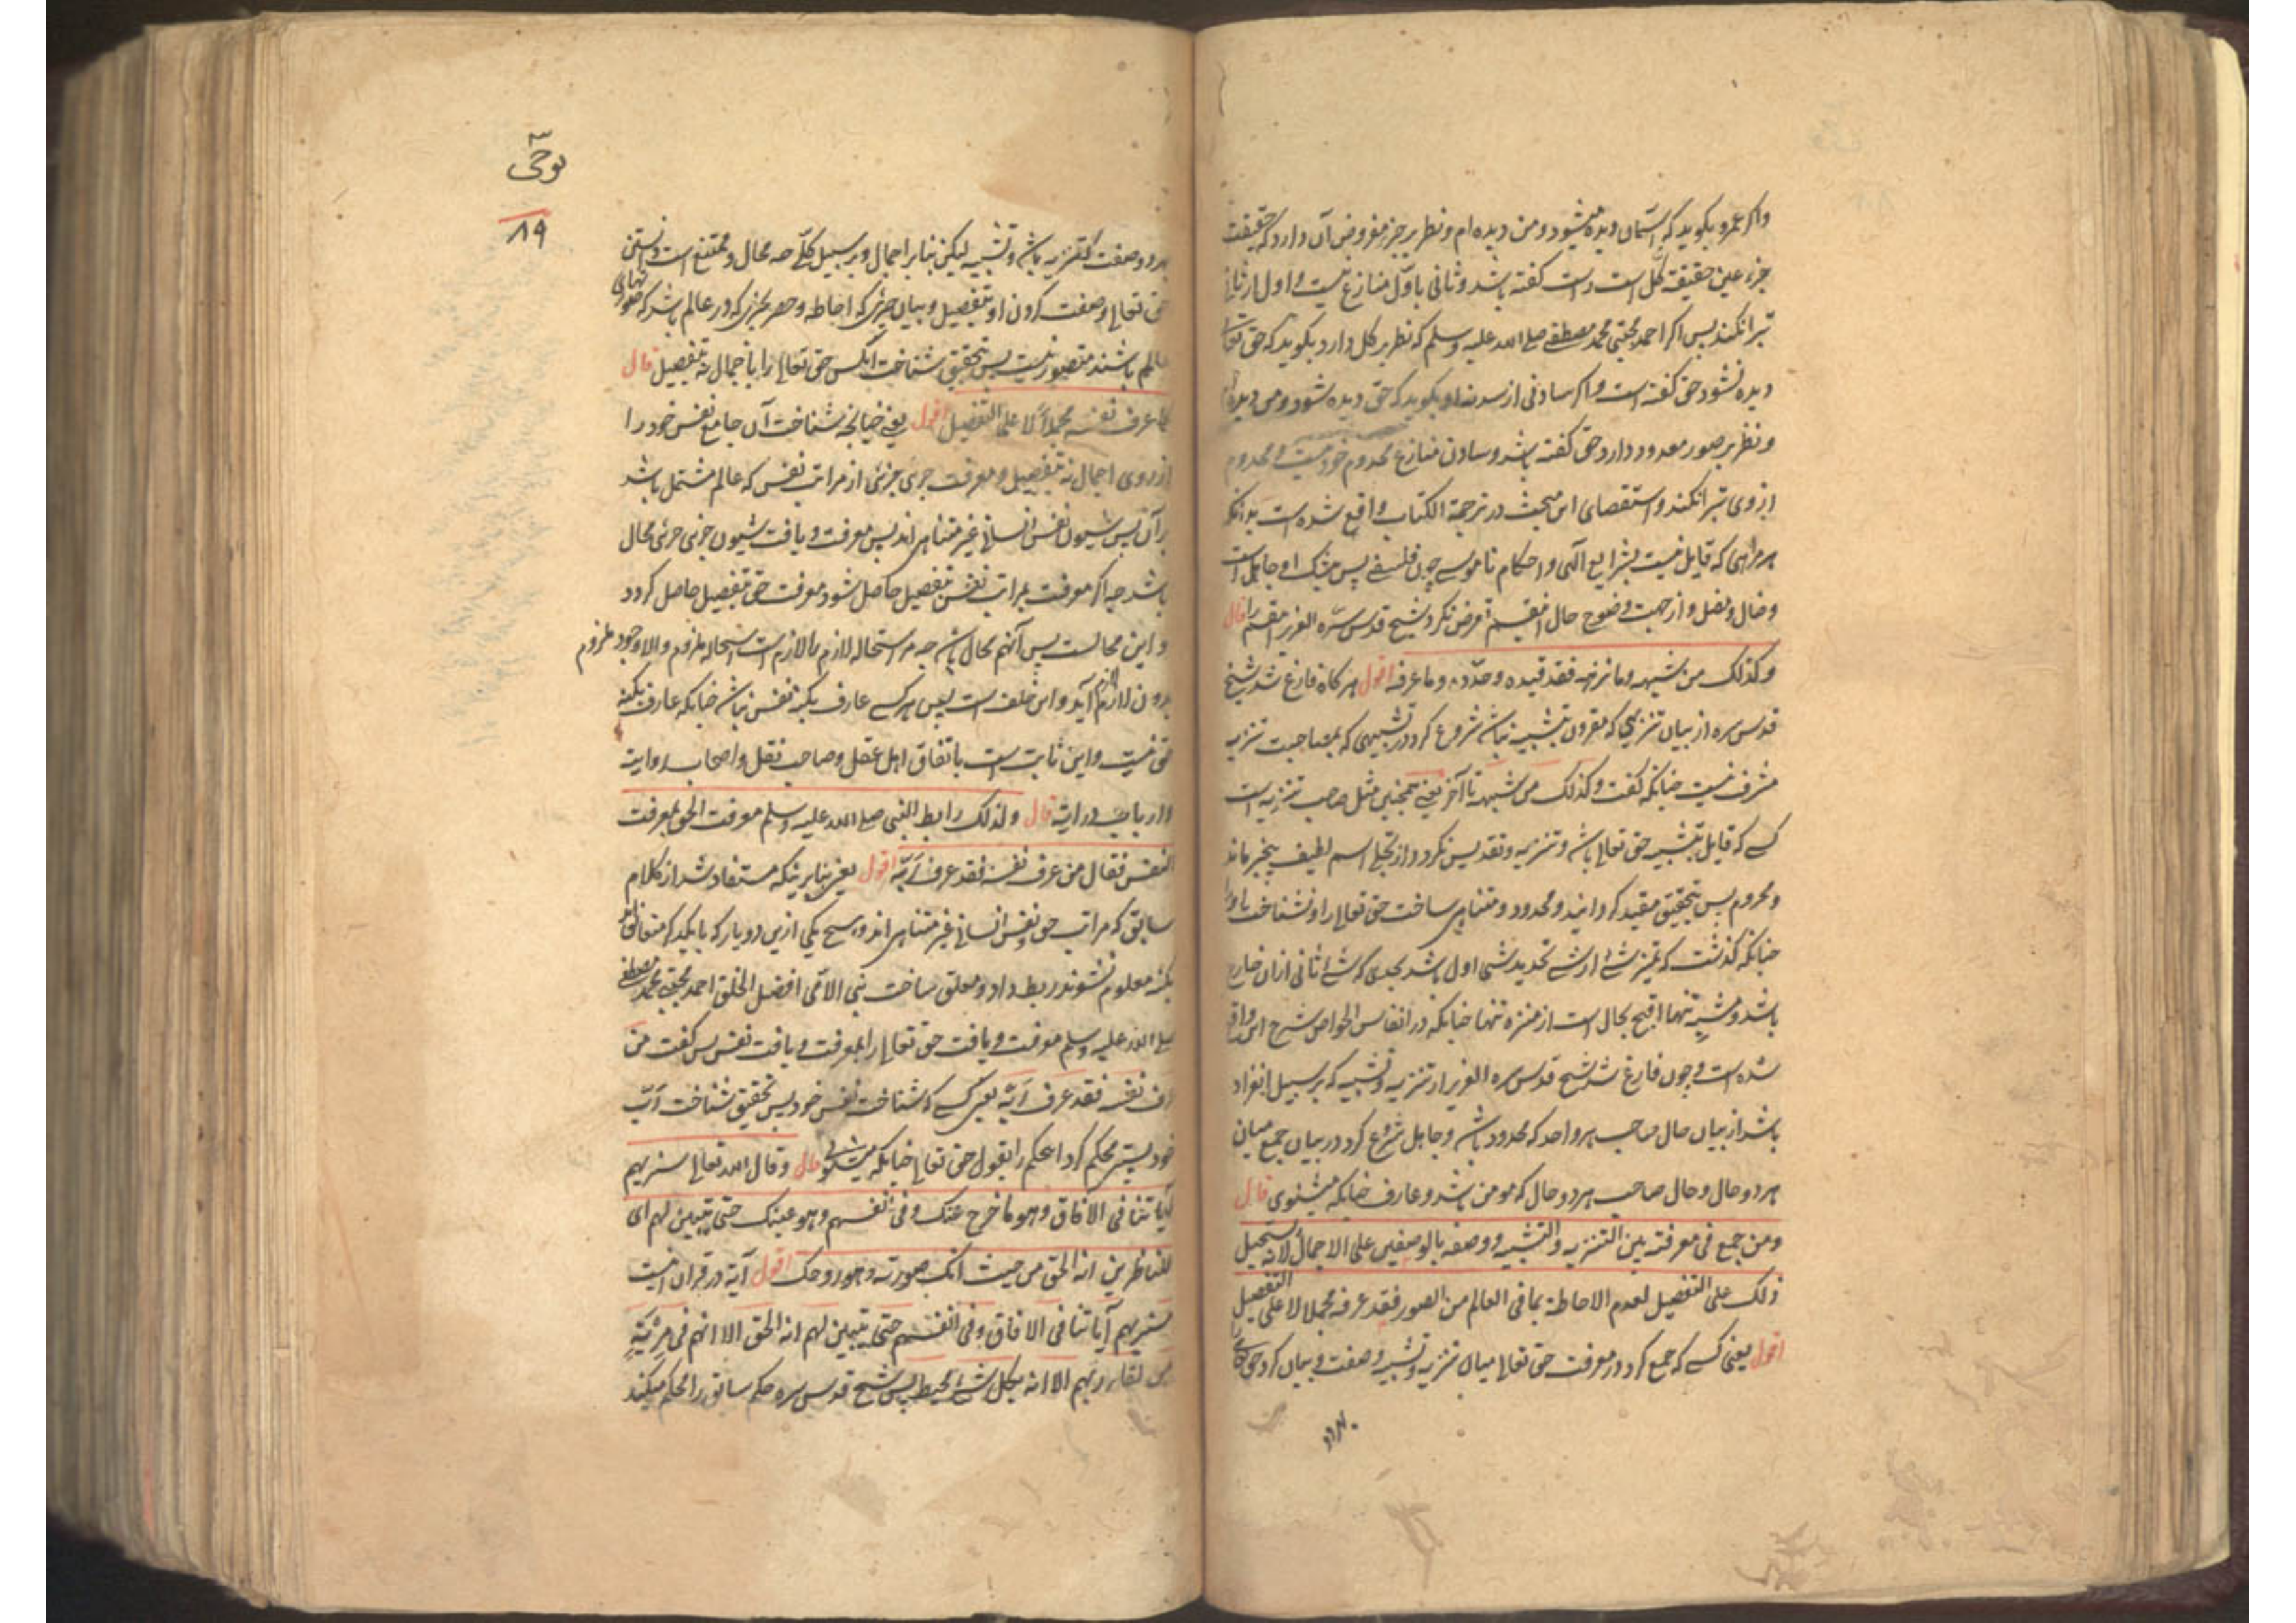 واکر عمرو بکوید که آسمان دیده میشود و من دیده ام و نظر بر جزء مفروض آن دارد که حقیقت
جزء عین حقیقة کل است راست کفته باشد و ثانی با اول منازع نیست و اول از ثانی
تبرا نکند پس اکر احمد مجتبی محمد مصطفی صلی الله علیه وسلم که نظر بر کل دارد بکوید که حق تعالی
دیده نشود حق کفته است و اکر سادنی از سدنه او بکوید که حق دیده شود و من دیده ام
و نظر بر صور معدود دارد حق کفته باشد و سادن منازع مخدوم خود نیست و مخدوم
از وی تبرا نکند و استقصای این مبحث در ترجمة الکتاب واقع شده است بدانکه
هر که قایل نیست بشرایع الهی و احکام ناموسی چون فلسفی پس بیشک او جاهل است
و ضال و مضل و از جهت وضوح حال اینقسم تعرض نکرد شیخ قدس سره العزیز اینقسم را قال
وکذلک من شبهه وما نزهه فقد قیده وحدده وما عرفه اقول هر کاه فارغ شد شیخ
قدس سره از بیان تنزیهی که مقرون بتشبیه نباشد شروع کرد در تشبیهی که بمصاحبت تنزیه
مشرف نیست چنانکه کفت وکذلک من شبهه تا آخر یعنی همچنین مثل صاحب تنزیه است
کسی که قایل بتشبیه حق تعالی باشد و تنزیه و تقدیس نکرد و از تجلی اسم لطیف بیخبر ماند
و محروم پس بتحقیق مقید کردانید و محدود و متناهی ساخت حق تعالی را و نشناخت او را
چنانکه کذشت که تمیز شی از شی تحدید شی اول باشد بحدی که شی ثانی ازان خارج
باشد و مشبه تنها اقبح بحال است از منزه تنها چنانکه در انفاس الخواص شرح این واقع
شده است و چون فارغ شد شیخ قدس سره العزیز از تنزیه و تشبیه که بر سبیل انفراد
باشد از بیان حال صاحب هر واحد که محدود باشد و جاهل شروع کرد در بیان جمع میان
هر دو حال و حال صاحب هر دو حال که مومن باشد و عارف چنانکه میشنوی قال
ومن جمع فی معرفته بین التنزیه والتشبیه ووصفه بالوصفین علی الاجمال لانه یستحیل
ذلک علی التفصیل لعدم الاحاطة بما فی العالم من الصور فقد عرفه مجملا لا علی التفصیل
اقول یعنی کسی که جمع کرد در معرفت حق تعالی میان تنزیه و تشبیه و وصفت و بیان کرد حق تعالی را
بهر دو
نوحی
۸۹
بهر دو وصفت که تنزیه باشد و تشبیه لیکن بنابر اجمال و بر سبیل کلی چه محال و ممتنع است دانستن
حق تعالی و صفت کردن او بتفصیل و بیان جزئی که احاطه و حصر بجزئی که در عالم باشد که صورتهای
عالم باشند متصور نیست پس بتحقیق شناخت آنکس حق تعالی را باجمال نه بتفصیل قال
کما عرف نفسه مجملا لا علی التفصیل اقول یعنی چنانچه شناخت آن جامع نفس خود را
از روی اجمال نه بتفصیل و معرفت جزئی جزئی از مراتب نفس که عالم مشتمل باشد
بر آن پس شیون نفس انسانی غیر متناهی اند پس معرفت و یافت شیون جزئی جزئی محال
باشد چه اکر معرفت بمراتب نفس بتفصیل حاصل شود معرفت حق بتفصیل حاصل کردد
و این محالست پس آنهم محال باشد چه مر استحاله لازم را لازم است استحاله ملزوم والا وجود ملزوم
بدون لازم لازم آید و این خلف است پس هر کسی عارف بکنه نفس نباشد چنانکه عارف بکنه
حق نیست و این ثابت است باتفاق اهل عقل و صاحب نقل و اصحاب روایت
و ارباب درایت قال ولذلک رابط النبی صلی الله علیه وسلم معرفت الحق بمعرفت
النفس فقال من عرف نفسه فقد عرف ربه اقول یعنی بنابر اینکه مستفاد شد از کلام
سابق که مراتب حق و نفس انسانی غیر متناهی اند و هیچ یکی ازین دو یار که با یکدیکر متعانق اند
بکنه معلوم نشوند ربط داد و معلق ساخت نبی الامی افضل الخلق احمد مجتبی محمد مصطفی
صلی الله علیه وسلم معرفت و یافت حق تعالی را بمعرفت و یافت نفس پس کفت من
عرف نفسه فقد عرف ربه یعنی کسی که شناخت نفس خود پس بتحقیق شناخت رب
خود پستر محکم کرد این حکم را بقول حق تعالی چنانکه میشنوی قال وقال الله تعالی سنریهم
آیاتنا فی الافاق وهو ما خرج عنک وفی انفسهم وهو عینک حتی یتبین لهم ای
للناظرین انه الحق من حیث انک صورته وهو روحک اقول آیه در قران اینست
سنریهم آیاتنا فی الافاق وفی انفسهم حتی یتبین لهم انه الحق الا انهم فی مریة
من لقاء ربهم الا انه بکل شیء محیط پس شیخ قدس سره حکم سابق را محکم میکند